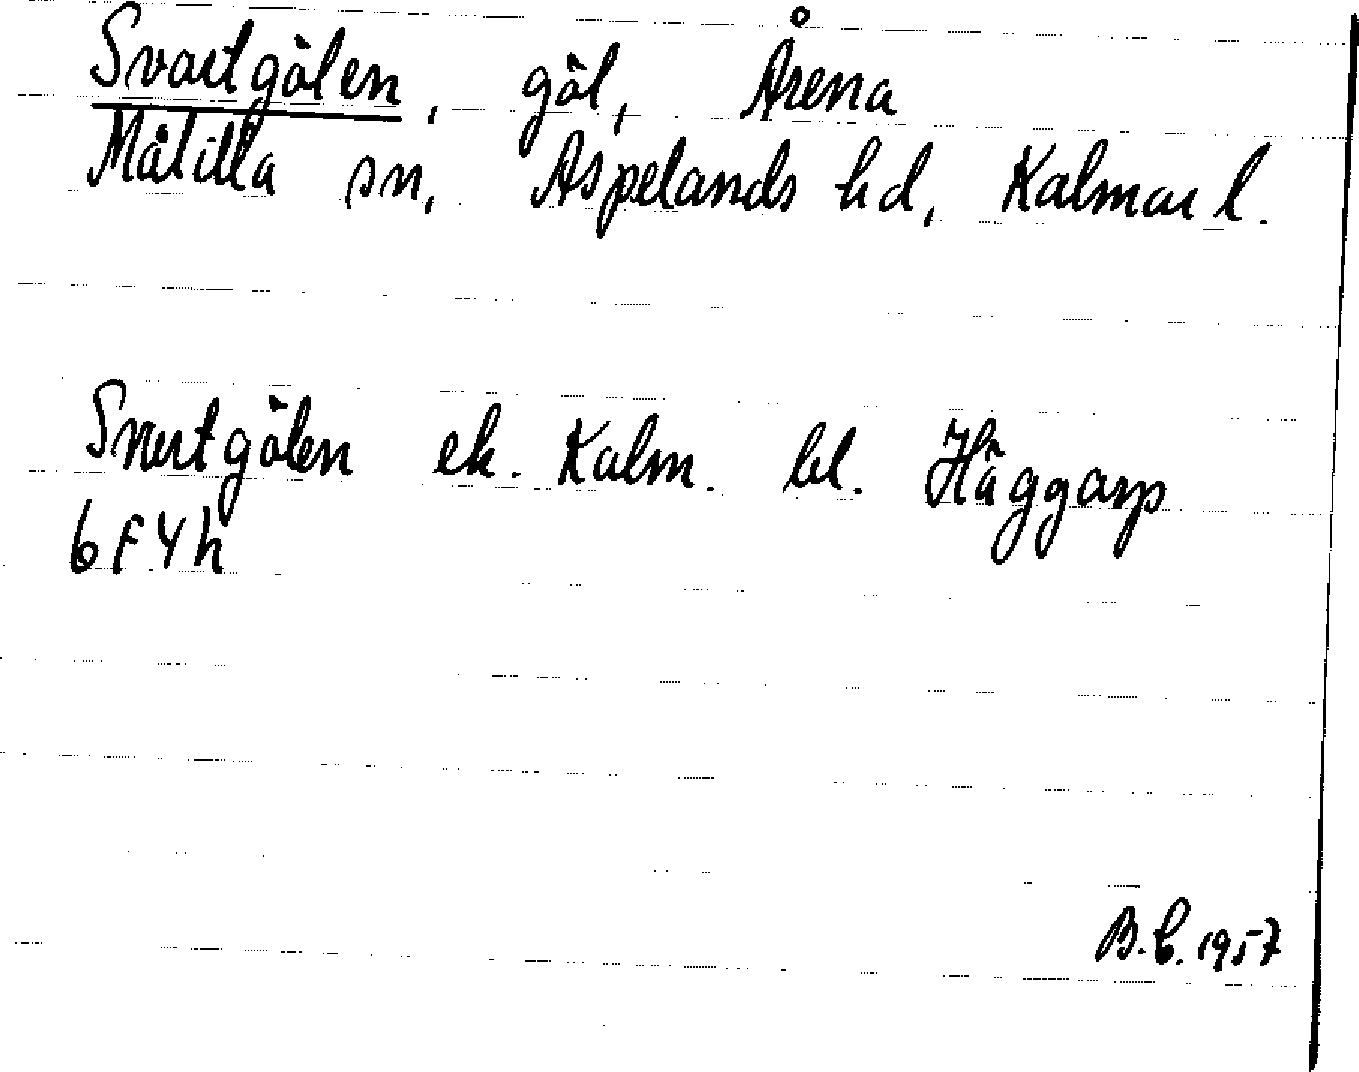 Svartgölen, göl, Årena
Målilla sn, Aspelands hd, Kalmar l.
Svartgölen ek. Kalm. bl. Häggarp
6F4h
B.C. 1957